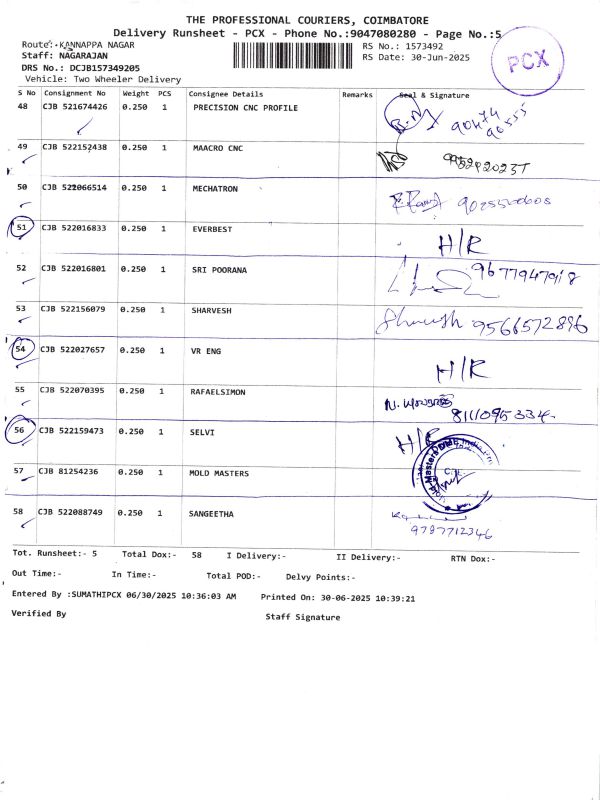 THE PROFESSIONAL COURIERS, COIMBATORE
Delivery Runsheet - PCX - Phone No.:9047080280 - Page No.:5
Route:-KANNAPPA NAGAR
RS No.: 1573492
PCX
Staff: NAGARAJAN
RS Date: 30-Jun-2025
DRS No.: DCJB157349205
Vehicle: Two Wheeler Delivery
S No Consignment No Weight PCS Consignee Details Remarks Seal & Signature
48 CJB 521674426 0.250 1 PRECISION CNC PROFILE 90474 90555
49 CJB 522152438 0.250 1 MAACRO CNC
50 CJB 522066514 0.250 1 MECHATRON
51 CJB 522016833 0.250 1 EVERBEST H/R
52 CJB 522016801 0.250 1 SRI POORANA 9677947918
53 CJB 522156079 0.250 1 SHARVESH Sharvesh 9566572896
54 CJB 522027657 0.250 1 VR ENG H/R
55 CJB 522070395 0.250 1 RAFAELSIMON 8111095334
56 CJB 522159473 0.250 1 SELVI H/R
57 CJB 81254236 0.250 1 MOLD MASTERS
58 CJB 522088749 0.250 1 SANGEETHA 9787712346
Tot. Runsheet:- 5 Total Dox:- 58 I Delivery:- II Delivery:- RTN Dox:-
Out Time:- In Time:- Total POD:- Delvy Points:-
Entered By :SUMATHIPCX 06/30/2025 10:36:03 AM Printed On: 30-06-2025 10:39:21
Verified By Staff Signature